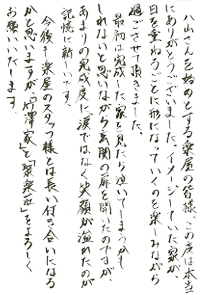 八山さんを始めとする楽屋の皆様、この度は本当
にありがとうございました。イメージしていた家が、
日を重ねるごとに形になっていくのを楽しみながら
過ごさせて頂きました。
最初は完成した家を見たら泣いてしまうかも
しれないと思いながら玄関の扉を開いたのですが、
あまりの完成度に涙ではなく笑顔が溢れたのが
記憶に新しいです。
今後も楽屋のスタッフ様とは長い付き合いになる
かと思いますが、澤家と「楽楽荘」をよろしく
お願いいたします。